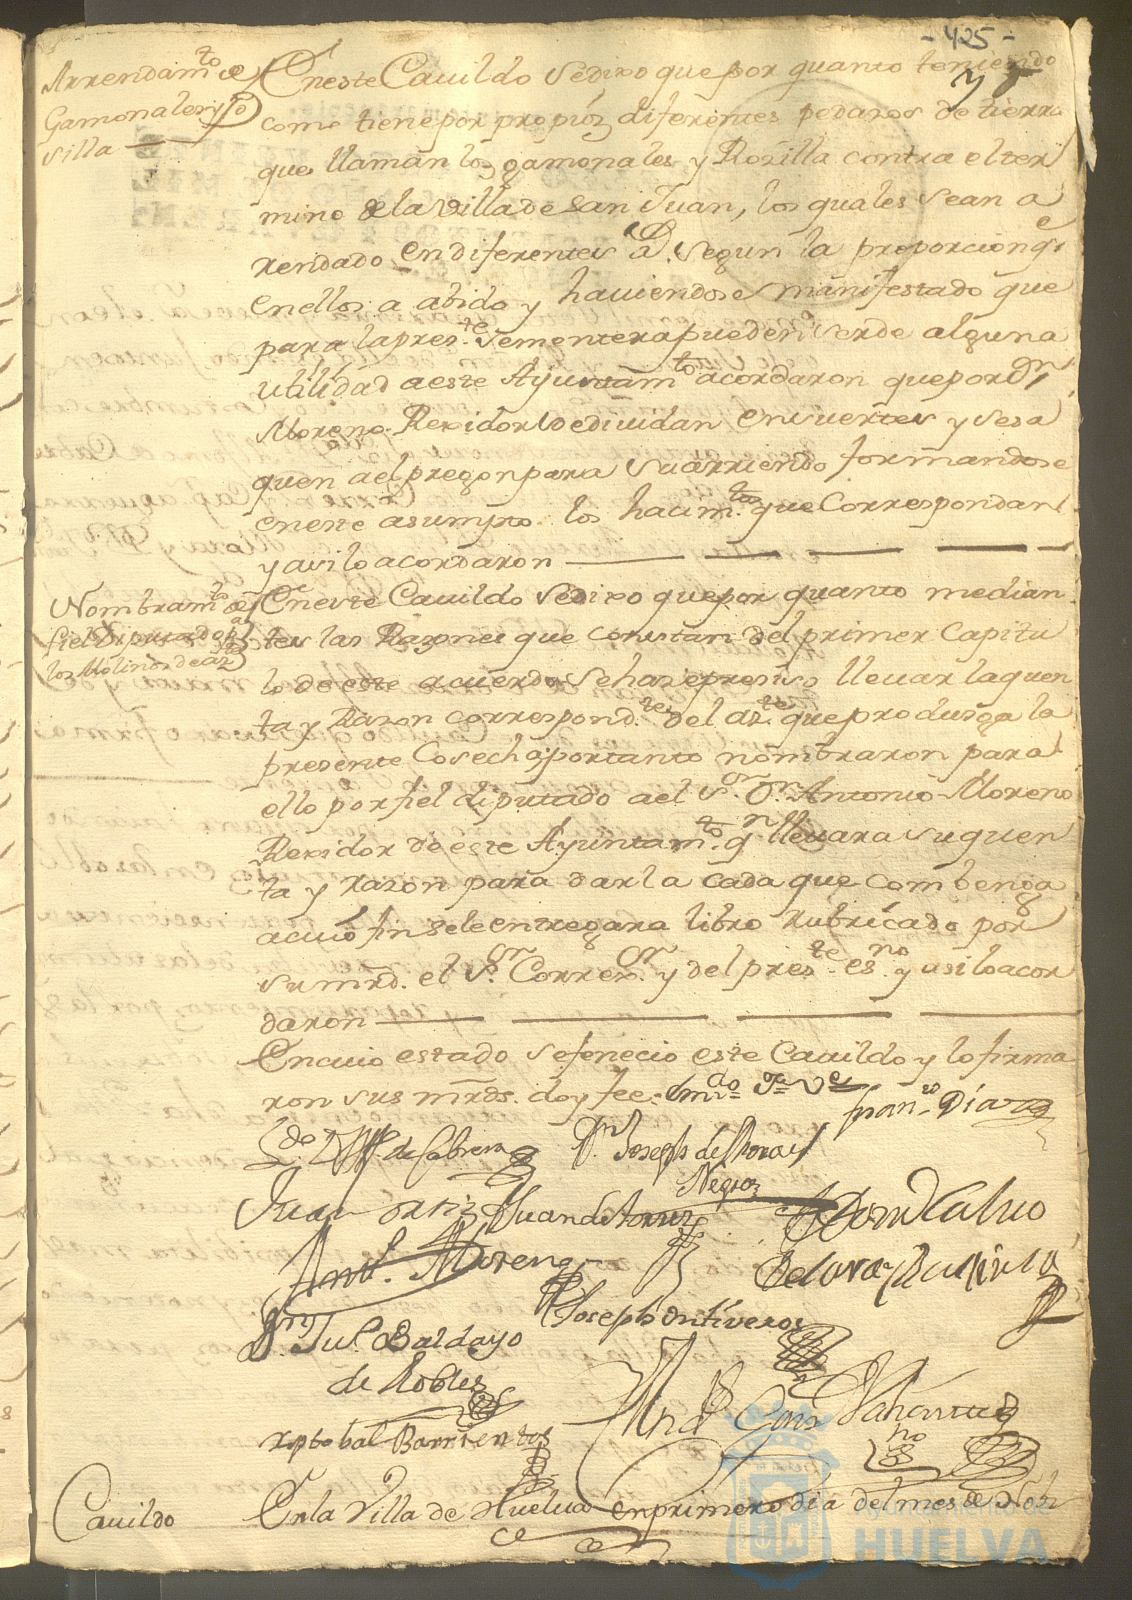 - 425 -
Arrendam.to de
Gamonales y Ro
silla
En este Cavildo se dixo que por quanto teniendo
como tiene por propios diferentes pedazos de tierra
que llaman los gamonales y Rosilla contra el ter
mino de la villa de San Juan, los quales se an a
rrendado en diferentes a.s segun la proporcion q.e
en ellos a abido y haviendose manifestado que
para la pres.te sementera pueden ser de alguna
utilidad a este Ayuntam.to acordaron que por
Moreno Rexidor se dividan en suertes y se sa
quen a el pregon para su arriendo formandose
en este asumpto los hacim.tos que Correspondan
y asi lo acordaron
Nombram.to de
fiel Diputado p.a
los Molinos de az.te
En este Cavildo se dixo que por quanto median
tes las Razones que constan del primer Capitu
lo de este acuerdo se haze presiso llevar la quen
ta y Razon correspond.te del az.te que produsga la
presente Cosecha portanto nombraron para
ello por fiel diputado a el S.or D.n Antonio Moreno
Rexidor de este Ayuntam.to q.n llevara su quen
ta y razon para darla cada que combenga
a cuio fin se le entregara libro rubricado por
su mrd. el S.or Correx.or y del pres.te es.no y asi lo acor
daron
En cuio estado se fenecio este Cavildo y lo firma
ron sus mrds. doy fee
Fran.co Diaz
L.do D. de Cabrera
D.n Joseph de Mora y
Negro
Juan ortiz
Juan de Torres
Calvo
Ant.o Moreno
D.n Ju.o Baldayo
de Robles
Joseph Ontiveros
xptobal Barrientos
Cavildo
En la Villa de Huelva en primero dia del mes de Nov
Ayuntamiento de
HUELVA